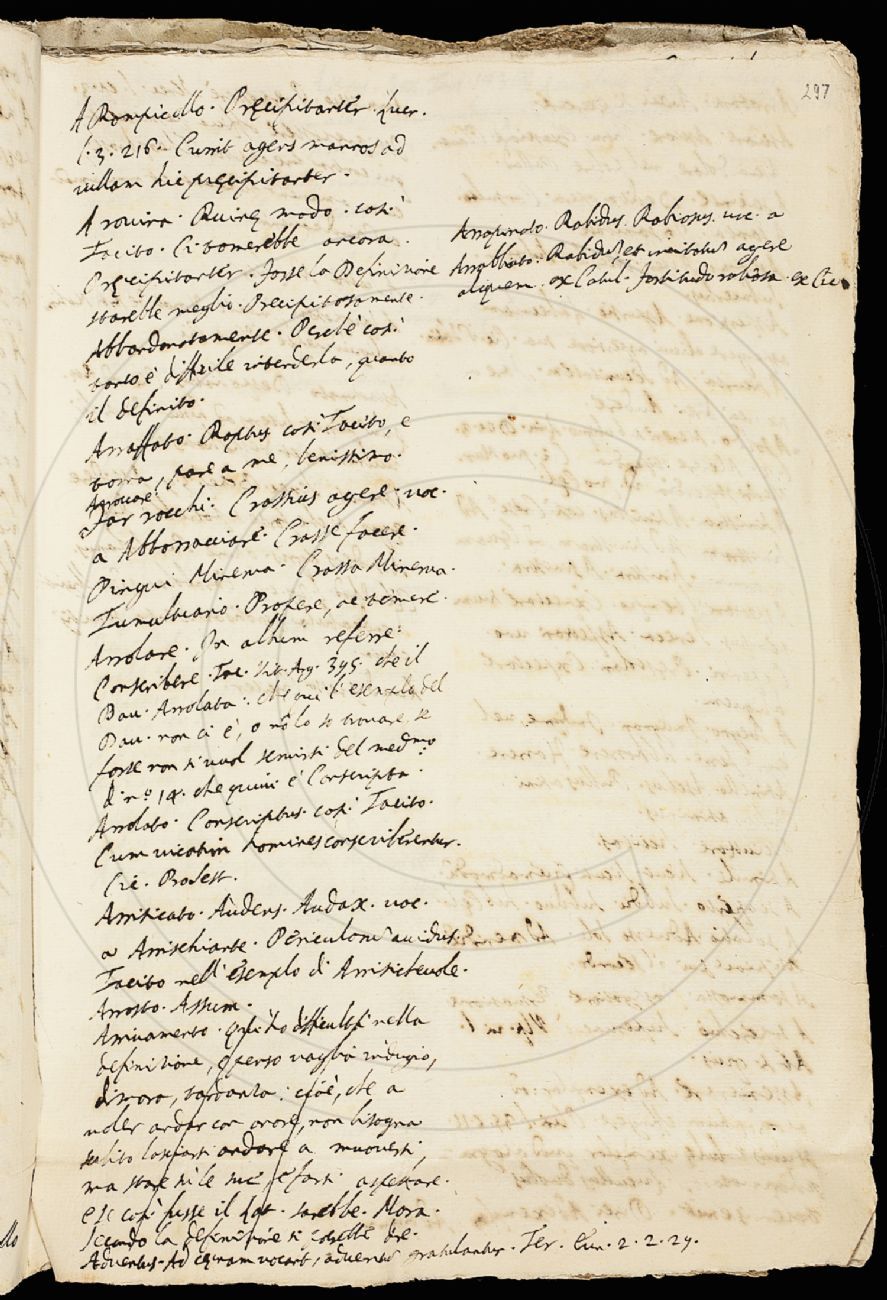 297
A Rompicollo. Pręcipitanter. Lucr.
l. 3. 216. Currit agens mannos ad
villam hic pręcipitanter.
A rovina. Ruinę modo. così
Tacito. Ci tornerebbe ancora.
Pręcipitanter. Forse la Definizione
starebbe meglio. Precipitosamente.
Abbandonatamente. Perchè così
tanto è difficile intenderla, quanto
il definito.
Arraffato. Raptus così Tacito, e
torna, pare a me, benissimo.
Arrocare
Far rocchi. Crassius agere. voc.
a Abborracciare. Crasse facere.
Pingui Minerva. Crassa Minerva.
Tumultuario. Propere, ac temere.
Arrolare. In album referre.
Conscribere. Tac. Vit. Ag. 395. che il
Dav. Arrolata. che qui l'esemplo del
Dav. non ci è, o nõ lo so trovare, se
forse non si vuol servirsi del medmo
d. no. 14. che quivi è Conscripta.
Arrolato. Conscriptus. così Tacito.
Cum vicatim homines conscriberentur.
Cic. Pro Sest.
Arrisicato. Audens. Audax. voc.
a Arrischiante. Periculorum avidus
Tacito nell'esemplo di Arrisichevole.
Arrosto. Assum.
Arrivamento. Qui ho difficultà nella
definizione, penso vaglia indugio,
dimora, tardanza: cioè, che a
voler andar con onore, non bisogna
subito lasciarsi andare a muoversi,
ma stare sù le sue, e farsi aspettare.
e se così fusse il lat. sarebbe. Mora.
Secondo la definizione si potrebbe dire.
Adventus. Ad cęnam vocant, adventũ gratulantur. Ter. Eun. 2. 2. 29.
Arrapinato. Rabidus. Rabiosus. voc. a
Arrabbiato. Rabidus, et incitatus agere
aliquem. ex Catul. Fortitudo rabiosa. ex Cic.